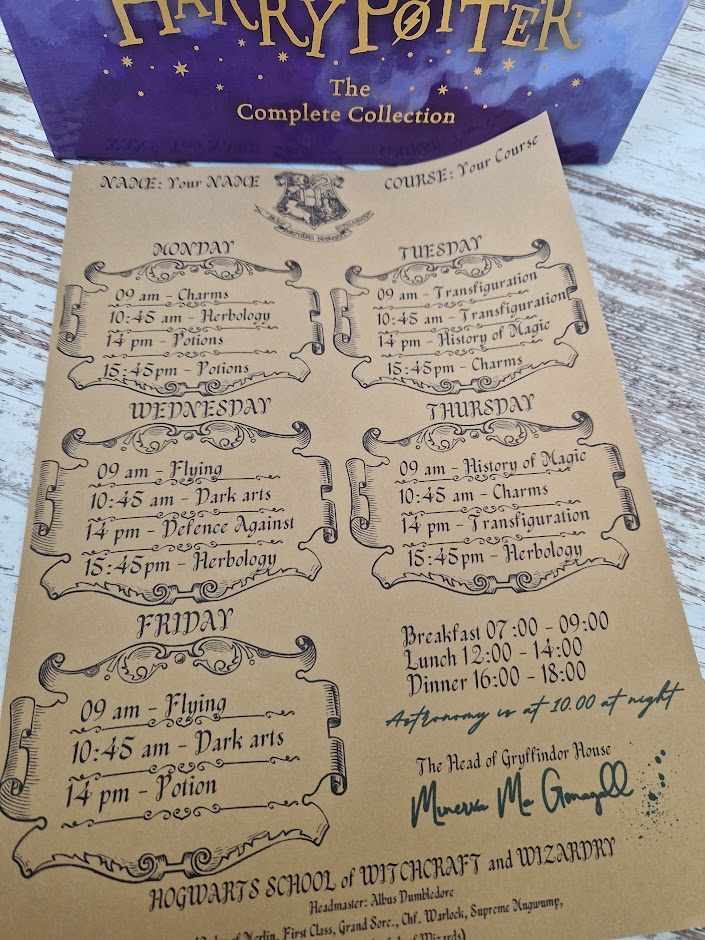 HARRY POTTER
The
Complete Collection
NAME: Your NAME
COURSE: Your Course
MONDAY
09 am - Charms
10:45 am - Herbology
14 pm - Potions
15:45pm - Potions
TUESDAY
09 am - Transfiguration
10:45 am - Transfiguration
14 pm - History of Magic
15:45pm - Charms
WEDNESDAY
09 am - Flying
10:45 am - Dark arts
14 pm - Defence Against
15:45pm - Herbology
THURSDAY
09 am - History of Magic
10:45 am - Charms
14 pm - Transfiguration
15:45pm - Herbology
FRIDAY
09 am - Flying
10:45 am - Dark arts
14 pm - Potion
Breakfast 07:00 - 09:00
Lunch 12:00 - 14:00
Dinner 16:00 - 18:00
Astronomy is at 10.00 at night
The Head of Gryffindor House
Minerva Mc Gonagall
HOGWARTS SCHOOL of WITCHCRAFT and WIZARDRY
Headmaster: Albus Dumbledore
of Merlin, First Class, Grand Sorc., Chf. Warlock, Supreme Mugwump,
of Wizards)